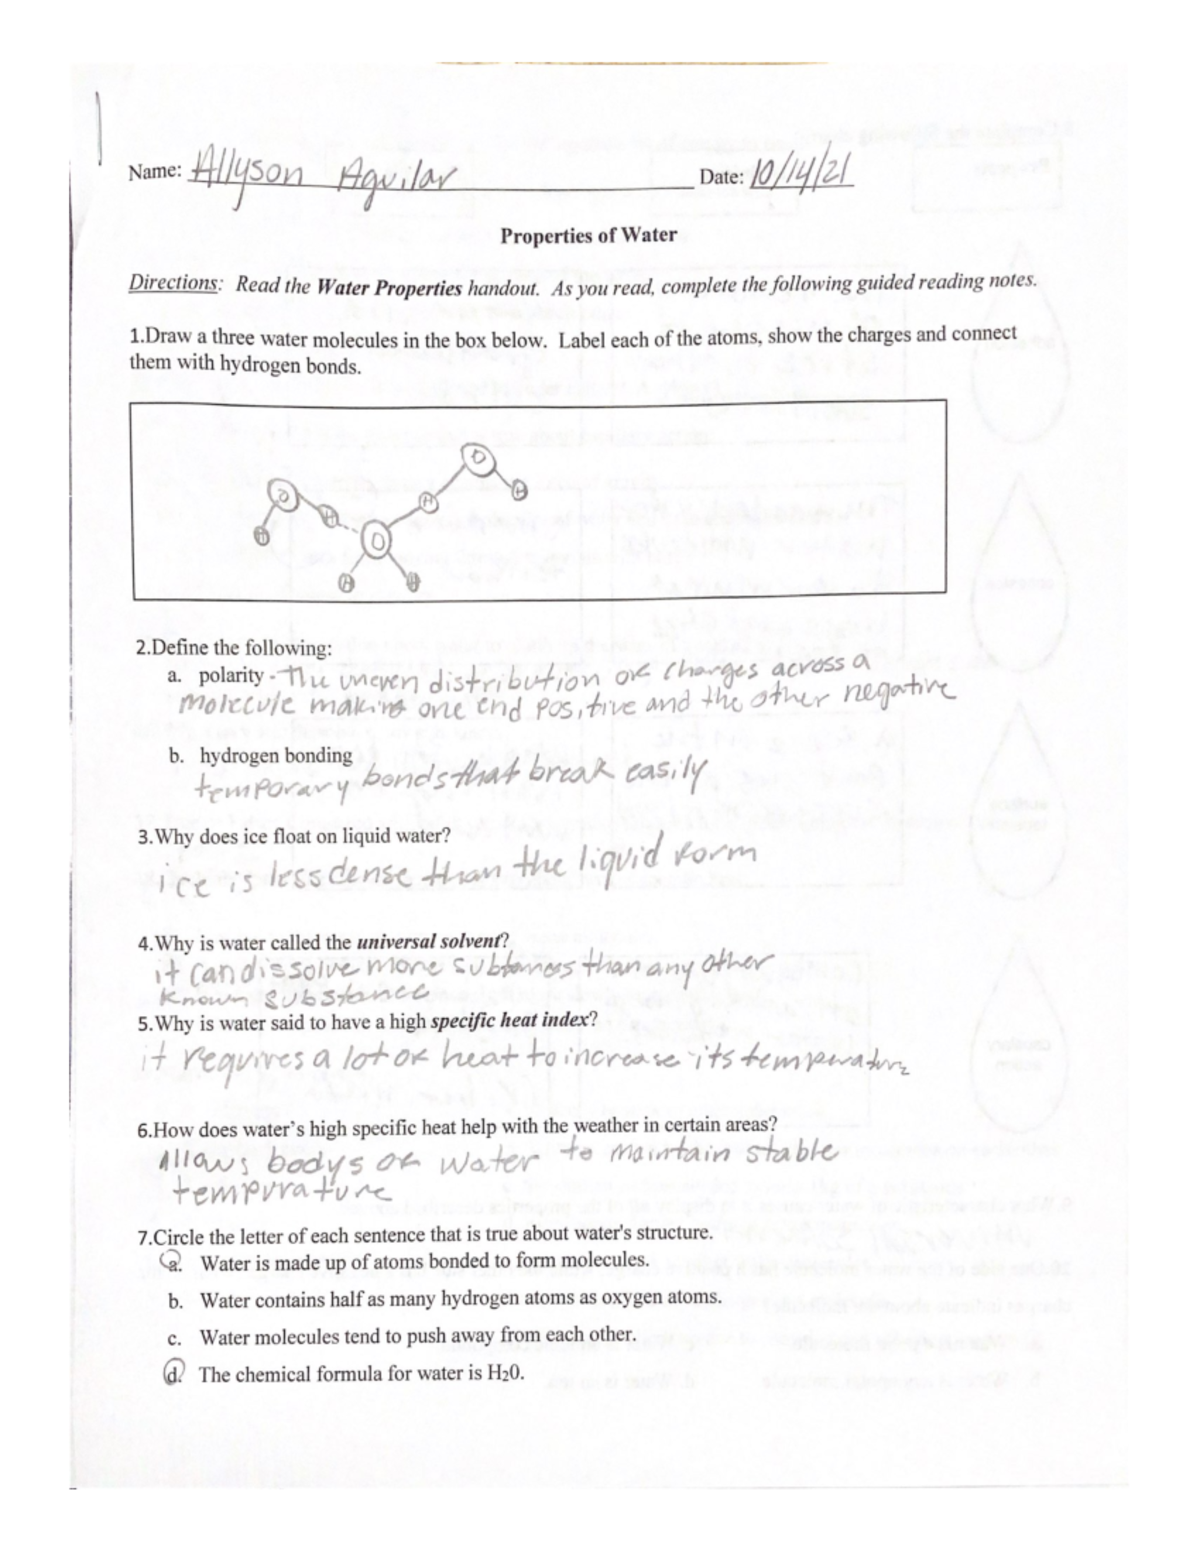 Name: Allyson Aguilar Date: 10/14/21
Properties of Water
Directions: Read the Water Properties handout. As you read, complete the following guided reading notes.
1.Draw a three water molecules in the box below. Label each of the atoms, show the charges and connect
them with hydrogen bonds.
O H H O H H O H H
2.Define the following:
a. polarity - The uneven distribution of charges across a
molecule making one end positive and the other negative
b. hydrogen bonding
temporary bonds that break easily
3.Why does ice float on liquid water?
ice is less dense than the liquid form
4.Why is water called the universal solvent?
it can dissolve more subtances than any other
known substance
5.Why is water said to have a high specific heat index?
it requires a lot of heat to increase its temperature
6.How does water's high specific heat help with the weather in certain areas?
Allows bodys of water to maintain stable
tempurature
7.Circle the letter of each sentence that is true about water's structure.
a. Water is made up of atoms bonded to form molecules.
b. Water contains half as many hydrogen atoms as oxygen atoms.
c. Water molecules tend to push away from each other.
d. The chemical formula for water is H₂0.